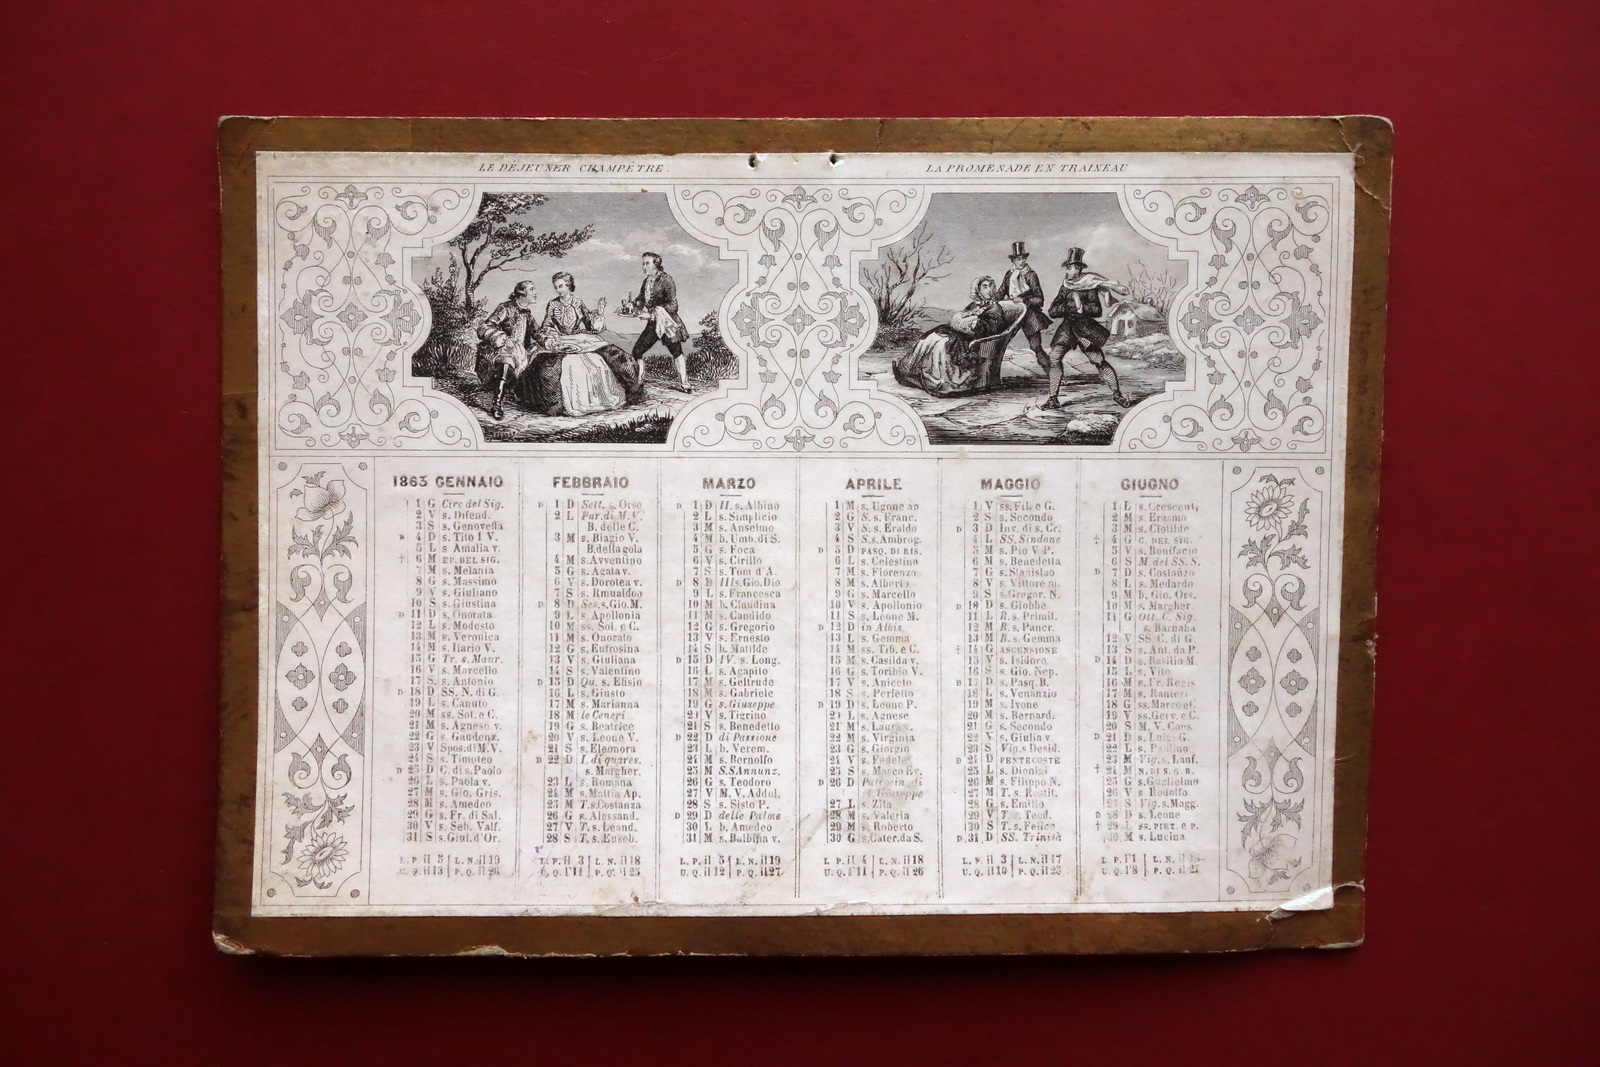 LE DÉJEUNER CHAMPÊTRE.
LA PROMENADE EN TRAINEAU
1863 GENNAIO
1 G Circ del Sig.
2 V s. Difend.
3 S s. Genoveffa
D 4 D s. Tito I V.
5 L s Amalia v.
† 6 M EP. DEL SIG.
7 M s. Melania
8 G s. Massimo
9 V s. Giuliano
10 S s. Giustina
D 11 D s. Onorata
12 L s. Modesto
13 M s. Veronica
14 M s. Ilario V.
15 G Tr. s. Maur.
16 V s. Marcello
17 S s. Antonio
D 18 D SS. N. di G.
19 L s. Canuto
20 M ss. Sol. e C.
21 M s. Agnese v.
22 G s. Gaudenz.
23 V Spos. di M.V.
24 S s. Timoteo
D 25 D C. di s. Paolo
26 L s. Paola v.
27 M s. Gio. Gris.
28 M s. Amedeo
29 G s. Fr. di Sal.
30 V s. Seb. Valf.
31 S s. Giul. d'Or.
L. P. il 5 | L. N. il 19
U. Q. il 13 | P. Q. il 26
FEBBRAIO
D 1 D Sett. s. Orso
2 L Pur. di M. V.
B. delle C.
3 M s. Biagio V.
B. della gola
4 M s. Avventino
5 G s. Agata v.
6 V s. Dorotea v.
7 S s. Rmualdo
D 8 D Ses. s. Gio. M.
9 L s. Apollonia
10 M ss. Sol. e C.
11 M s. Onorato
12 G s. Eufrosina
13 V s. Giuliana
14 S s. Valentino
D 15 D Qu. s. Efisio
16 L s. Giusto
17 M s. Marianna
18 M le Ceneri
19 G s. Beatrice
20 V s. Leone V.
21 S s. Eleonora
D 22 D I. di quares.
s. Margher.
23 L s. Romana
24 M s. Mattia Ap.
25 M T. s. Costanza
26 G s. Alessand.
27 V T. s. Leand.
28 S T. s. Euseb.
L. P. il 3 | L. N. il 18
U. Q. l'11 | P. Q. il 25
MARZO
D 1 D II. s. Albino
2 L s. Simplicio
3 M s. Anselmo
4 M b. Umb. di S.
5 G s. Foca
6 V s. Cirillo
7 S s. Tom d'A.
D 8 D III s. Gio. Dio
9 L s. Francesca
10 M b. Claudina
11 M s. Candido
12 G s. Gregorio
13 V s. Ernesto
14 S b. Matilde
D 15 D IV. s. Long.
16 L s. Agapito
17 M s. Geltrude
18 M s. Gabriele
19 G s. Giuseppe
20 V s. Tigrino
21 S s. Benedetto
D 22 D di Passione
23 L b. Verem.
24 M s. Bernolfo
25 M S.S. Annunz.
26 G s. Teodoro
27 V M. V. Addol.
28 S s. Sisto P.
D 29 D delle Palme
30 L b. Amedeo
31 M s. Balbina v.
L. P. il 5 | L. N. il 19
U. Q. il 12 | P. Q. il 27
APRILE
1 M s. Ugone
2 G S. s. Franc.
3 V S. s. Eraldo
4 S S. s. Ambrog.
D 5 D PASQ. DI RIS.
6 L s. Celestino
7 M s. Fiorenzo
8 M s. Alberto
9 G s. Marcello
10 V s. Apollonio
11 S s. Leone M.
D 12 D in Albis
13 L s. Gemma
14 M ss. Tib. e C.
15 M s. Casilda v.
16 G s. Toribio V.
17 V s. Aniceto
18 S s. Perfetto
D 19 D s. Leone P.
20 L s. Agnese
21 M s. Laura v.
22 M s. Virginia
23 G s. Giorgio
24 V s. Fedele
25 S s. Marco Ev.
D 26 D Patrocin. di
s. Giuseppe
27 L s. Zita
28 M s. Valeria
29 M s. Roberto
30 G s. Cater. da S.
L. P. il 4 | L. N. il 18
U. Q. l'11 | P. Q. il 26
MAGGIO
1 V ss. Fil. e G.
2 S s. Secondo
D 3 D Inv. di s. Cr.
4 L SS. Sindone
5 M s. Pio V P.
6 M s. Benedetta
7 G s. Stanislao
8 V s. Vittore m.
9 S s. Gregor. N.
D 10 D s. Giobbe
11 L R. s. Primil.
12 M R. s. Pancr.
13 M R. s. Gemma
† 14 G ASCENSIONE
15 V s. Isidoro
16 S s. Gio. Nep.
D 17 D s. Pasq. B.
18 L s. Venanzio
19 M s. Ivone
20 M s. Bernard.
21 G s. Secondo
22 V s. Giulia v.
23 S Vig. s Desid.
D 24 D PENTECOSTE
25 L s. Dionigi
26 M s. Filippo N.
27 M T. s. Restit.
28 G s. Emilio
29 V T. s. Teod.
30 S T. s. Felice
D 31 D SS. Trinità
L. P. il 3 | L. N. il 17
U. Q. il 10 | P. Q. il 25
GIUGNO
1 L s. Crescent.
2 M s. Erasmo
3 M s. Clotilde
† 4 G C. DEL SIG.
5 V s. Bonifacio
6 S M. del SS. S.
D 7 D s. Costanzo
8 L s. Medardo
9 M b. Gio. Ors.
10 M s. Margher.
11 G Ott. C. Sig.
s. Barnaba
12 V SS. C. di G.
13 S s. Ant. da P.
D 14 D s. Basilio M.
15 L s. Vito
16 M s. Fr. Regis
17 M s. Ranieri
18 G ss. Marco e C.
19 V ss. Gerv. e C.
20 S M. V. Cons.
D 21 D s. Luigi G.
22 L s. Paolino
23 M Vig. s. Lanf.
† 24 M N. DI S. G. B.
25 G s. Guglielmo
26 V s. Rodolfo
27 S Vig. s. Magg.
D 28 D s. Leone
† 29 L ss. PIET. e P.
30 M s. Lucina
L. P. l'1 | L. N. il
U. Q. l'8 | P. Q. il